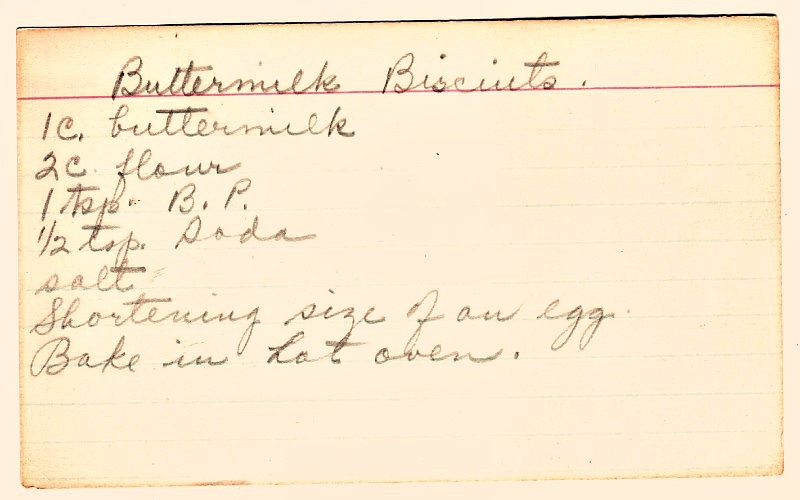 Buttermilk Biscuits.
1c. buttermilk
2c flour
1 tsp. B. P.
1/2 tsp. Soda
salt
Shortening size of an egg.
Bake in hot oven.